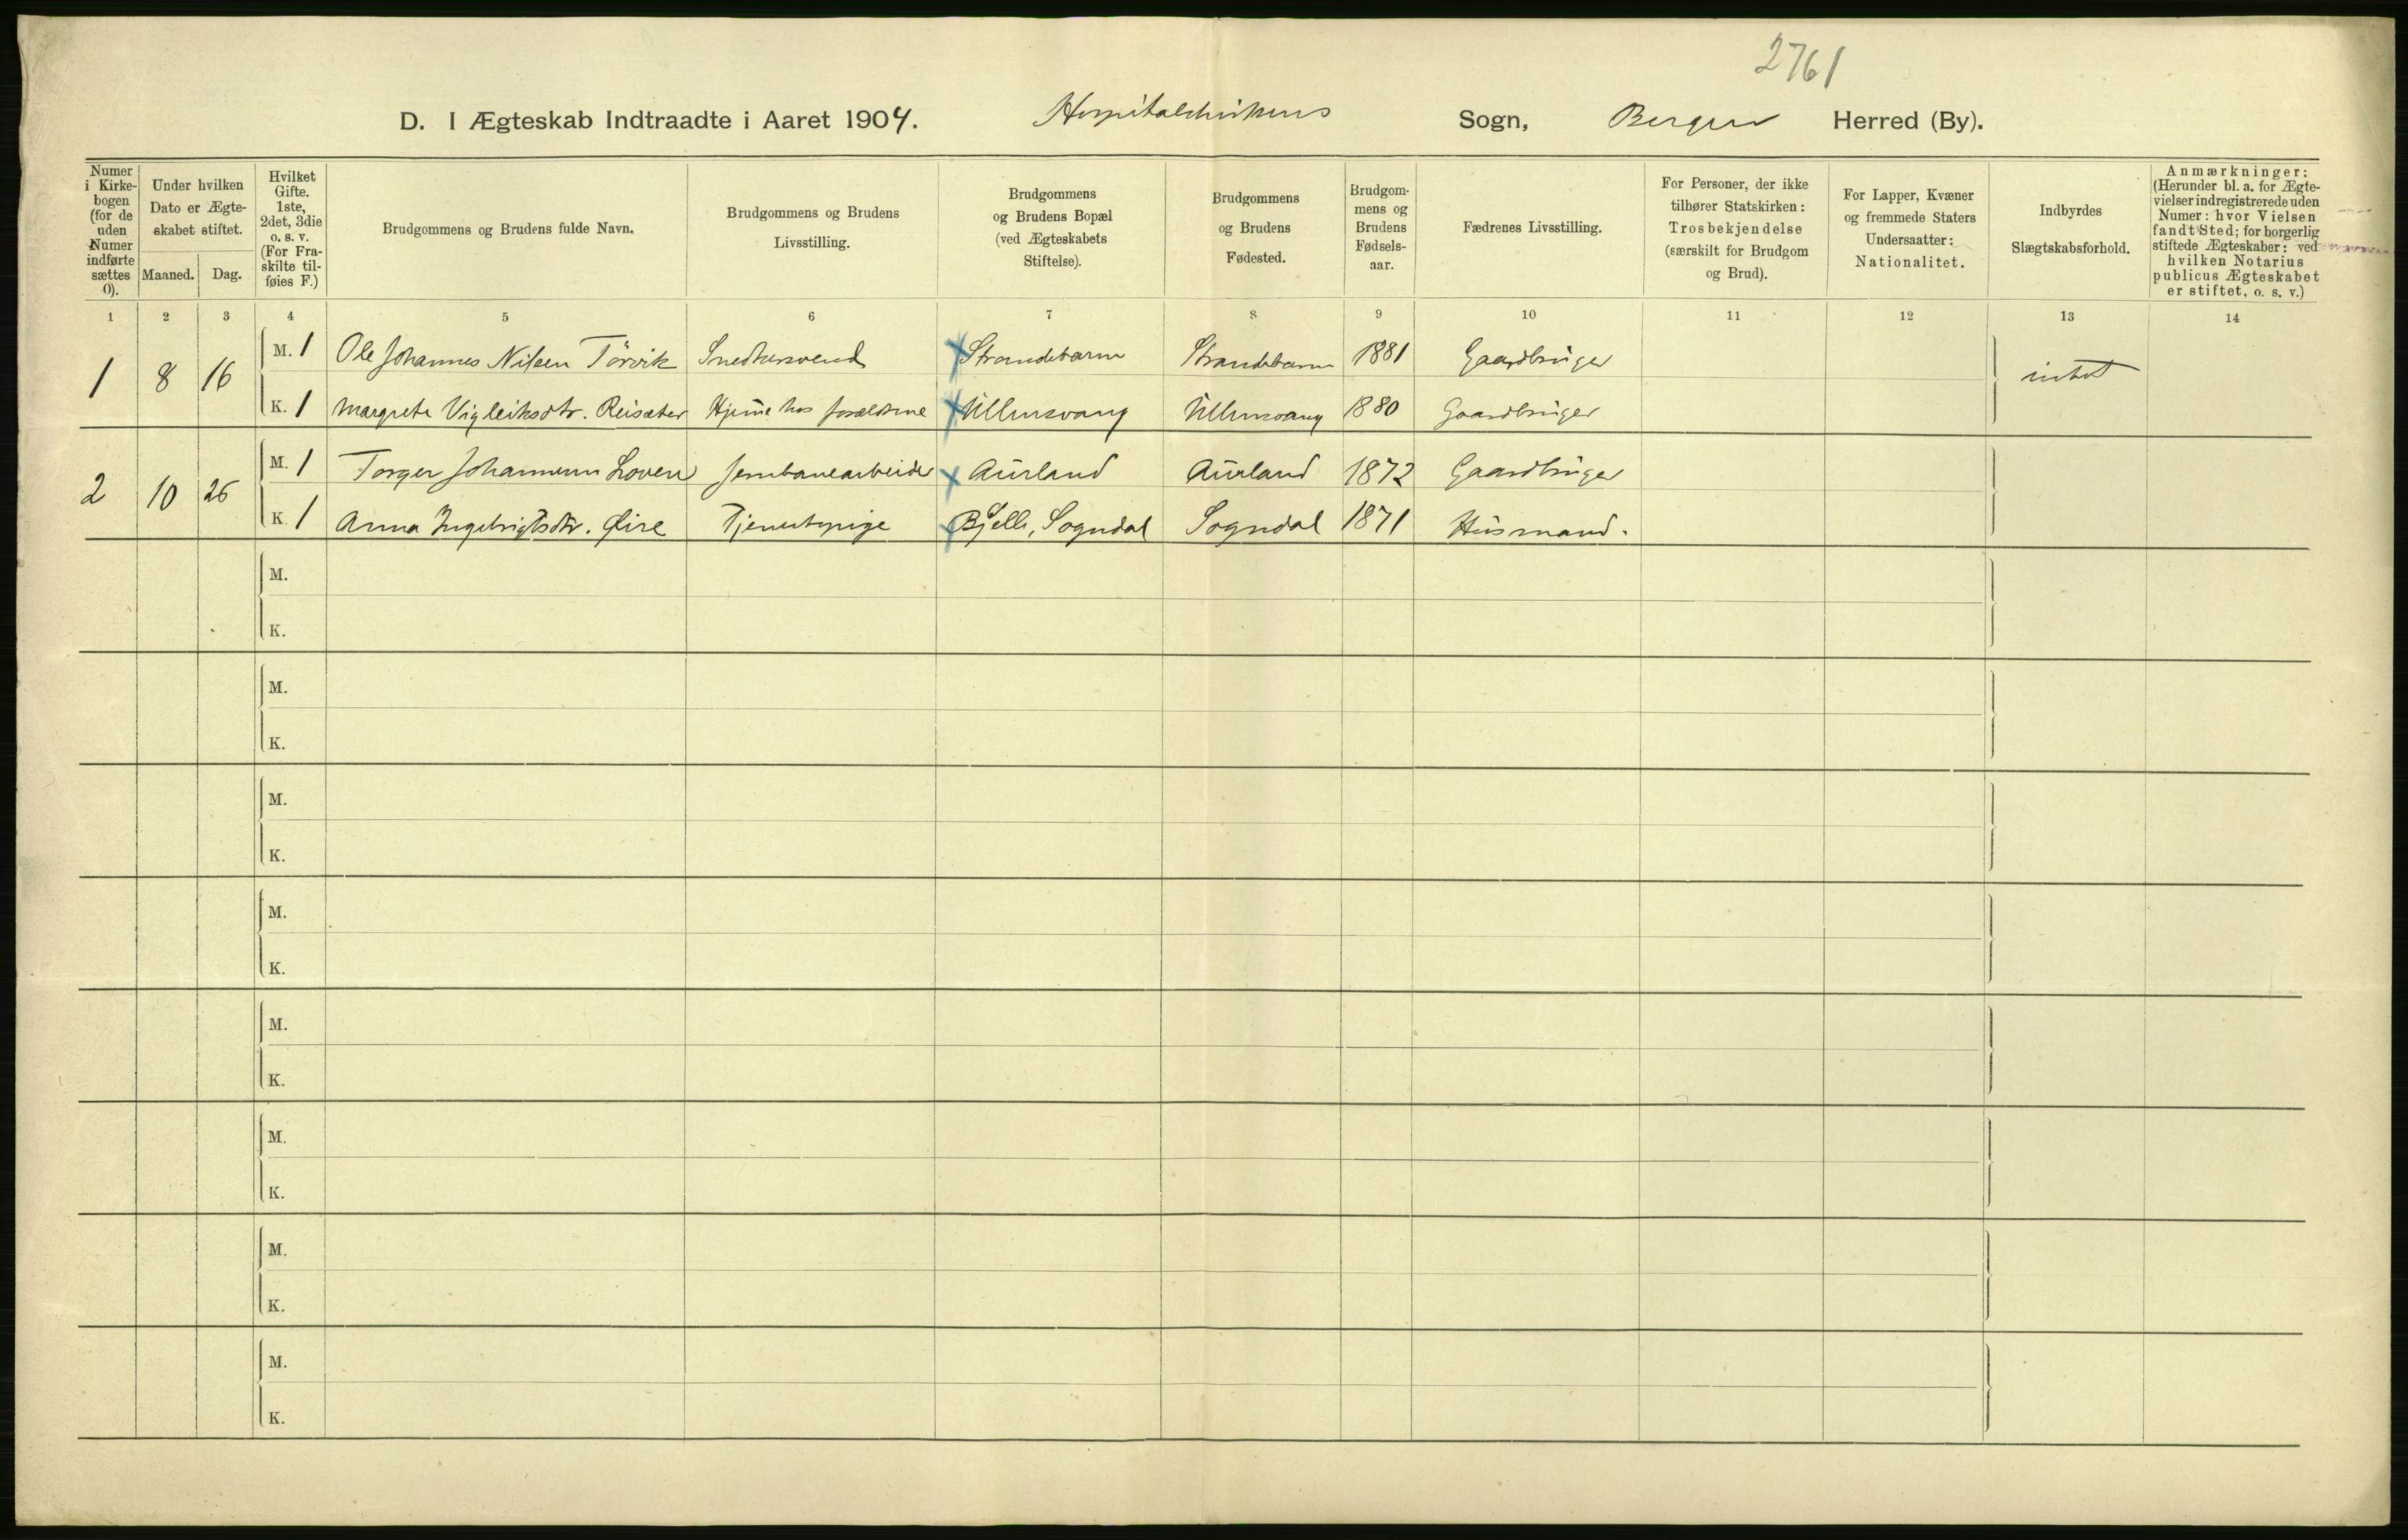 2761
D. I Ægteskab Indtraadte i Aaret 1904. Hospitalskirkens Sogn, Bergen Herred (By).
Numer i Kirkebogen (for de uden Numer indførte sættes 0).
Under hvilken Dato er Ægteskabet stiftet.
Maaned. Dag.
Hvilket Gifte. 1ste, 2det, 3die o. s. v. (For Fraskilte tilføies F.)
Brudgommens og Brudens fulde Navn.
Brudgommens og Brudens Livsstilling.
Brudgommens og Brudens Bopæl (ved Ægteskabets Stiftelse).
Brudgommens og Brudens Fødested.
Brudgommens og Brudens Fødselsaar.
Fædrenes Livsstilling.
For Personer, der ikke tilhører Statskirken: Trosbekjendelse (særskilt for Brudgom og Brud).
For Lapper, Kvæner og fremmede Staters Undersaatter: Nationalitet.
Indbyrdes Slægtskabsforhold.
Anmærkninger: (Herunder bl. a. for Ægtevielser indregistrerede uden Numer: hvor Vielsen fandt Sted; for borgerlig stiftede Ægteskaber: ved hvilken Notarius publicus Ægteskabet er stiftet, o. s. v.)
1 2 3 4 5 6 7 8 9 10 11 12 13 14
1 8 16 M. 1 Ole Johannes Nilsen Törvik Snedkersvend Strandebarm Strandebarm 1881 Gaardbruger intet
K. 1 Margrete Vigleiksdtr. Reisæter Hjeme hos forældrene Ullensvang Ullensvang 1880 Gaardbruger
2 10 26 M. 1 Torger Johannesen Loven Jernbanearbeider Aurland Aurland 1872 Gaardbruger
K. 1 Anna Ingebrigtsdtr. Øire Tjenestepige Bjelle, Sogndal Sogndal 1871 Husmand.
M.
K.
M.
K.
M.
K.
M.
K.
M.
K.
M.
K.
M.
K.
M.
K.